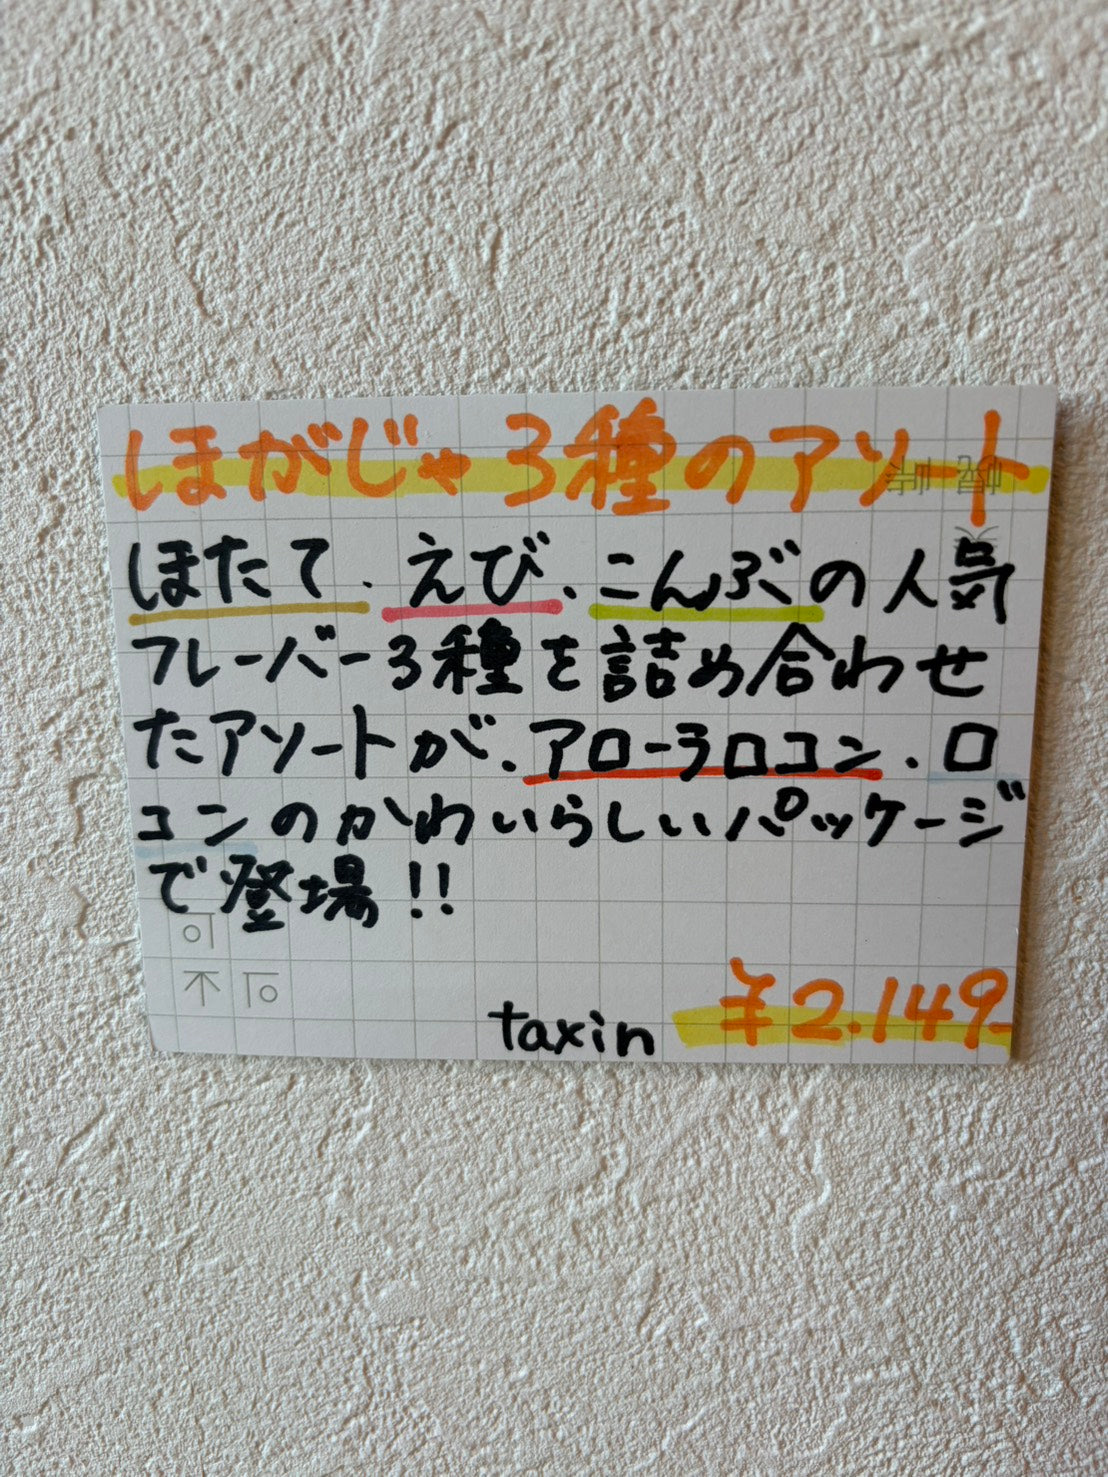 ほがじゃ3種のアソート
ほたて、えび、こんぶの人気
フレーバー3種を詰め合わせ
たアソートが、アローラロコン、ロ
コンのかわいらしいパッケージ
で登場!!
taxin ¥2.149-